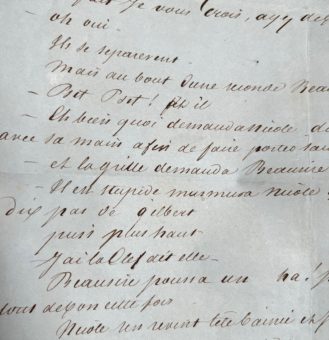 je vous crois, a y
– oh oui.
Ils se separerent
Mais au bout d'une seconde Beau
– Pst Pst! fit il
– Eh bien quoi demanda nicole de
avec sa main afin de faire porter sa
– et la grille demanda Beausire
– Il est stupide murmura nicole
dix pas de gilbert
puis plus haut
– J'ai la clef dit elle –
Beausire poussa un ha! p
tout de bon elle fois
Nicole s'en revint tête baissée et